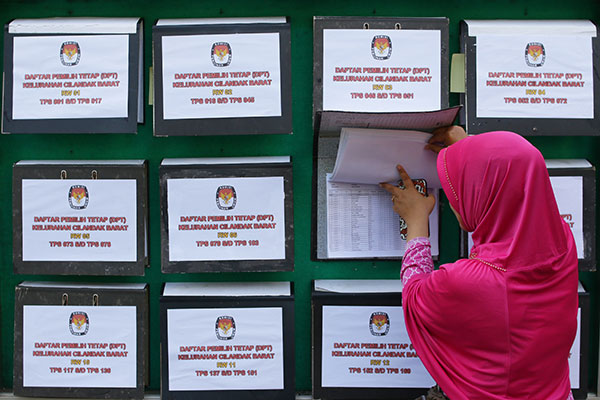 DAFTAR PEMILIH TETAP (DPT)
KELURAHAN CILANDAK BARAT
RW 01
TPS 001 S/D TPS 017
DAFTAR PEMILIH TETAP (DPT)
KELURAHAN CILANDAK BARAT
RW 02
TPS 018 S/D TPS 045
DAFTAR PEMILIH TETAP (DPT)
KELURAHAN CILANDAK BARAT
RW 03
TPS 046 S/D TPS 061
DAFTAR PEMILIH TETAP (DPT)
KELURAHAN CILANDAK BARAT
RW 04
TPS 062 S/D TPS 072
DAFTAR PEMILIH TETAP (DPT)
KELURAHAN CILANDAK BARAT
RW 05
TPS 073 S/D TPS 078
DAFTAR PEMILIH TETAP (DPT)
KELURAHAN CILANDAK BARAT
RW 06
TPS 079 S/D TPS
DAFTAR PEMILIH TETAP (DPT)
KELURAHAN CILANDAK BARAT
RW 10
TPS 117 S/D TPS 136
DAFTAR PEMILIH TETAP (DPT)
KELURAHAN CILANDAK BARAT
RW 11
TPS 137 S/D TPS 151
DAFTAR PEMILIH TETAP (DPT)
KELURAHAN CILANDAK BARAT
RW 12
TPS 152 S/D TPS